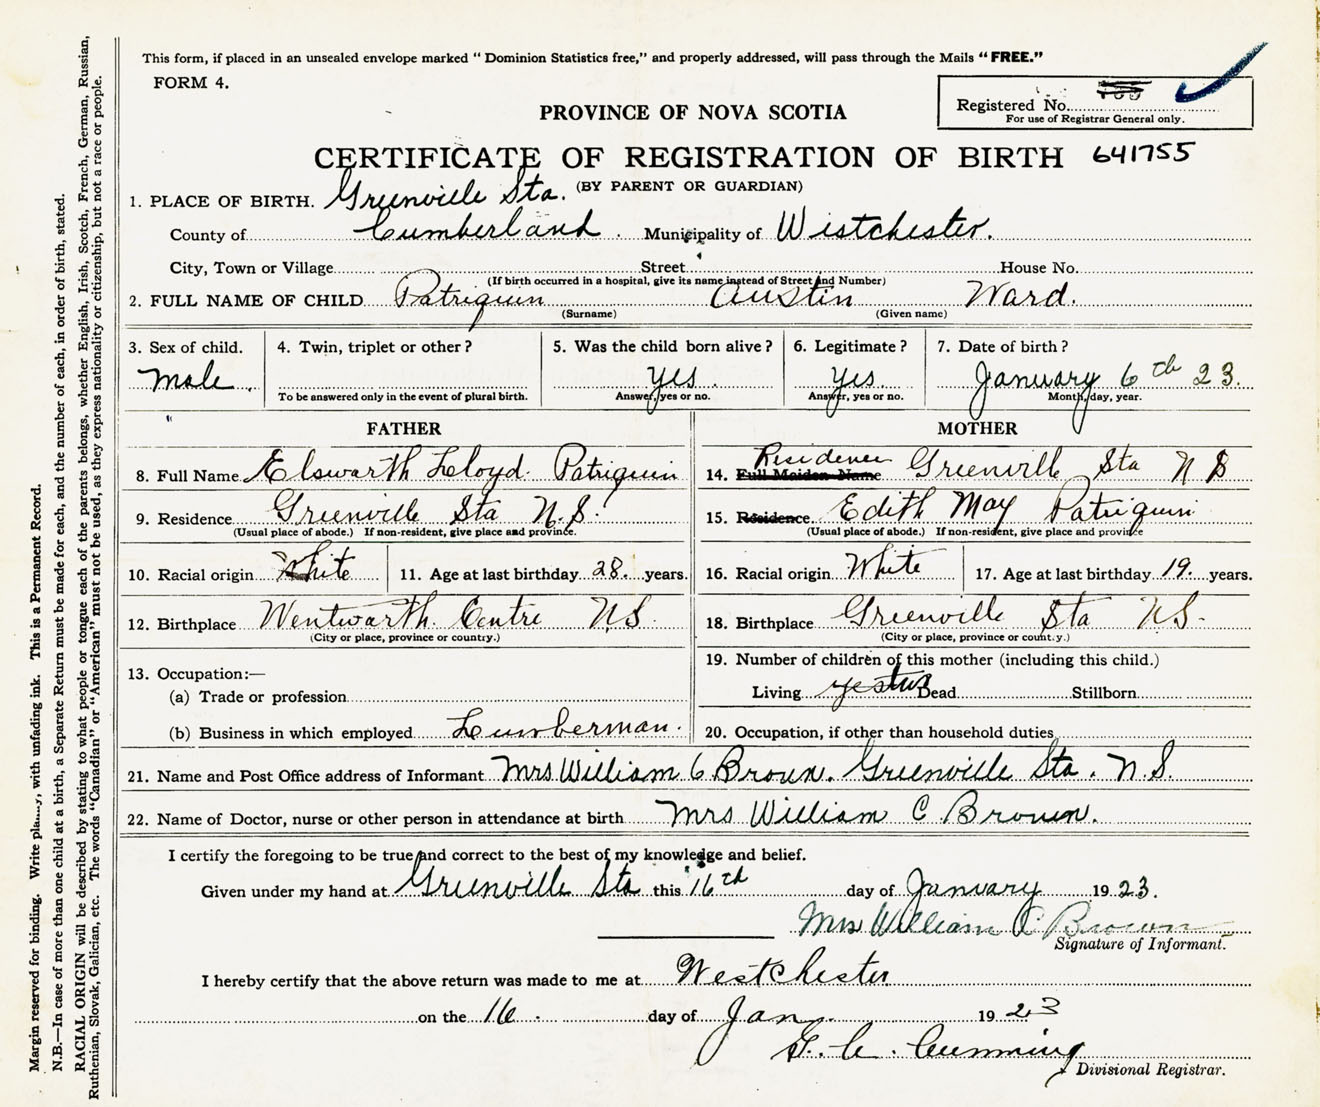 This form, if placed in an unsealed envelope marked "Dominion Statistics free," and properly addressed, will pass through the Mails "FREE."
FORM 4.
Registered No.
For use of Registrar General only.
PROVINCE OF NOVA SCOTIA
CERTIFICATE OF REGISTRATION OF BIRTH 641755
(BY PARENT OR GUARDIAN)
1. PLACE OF BIRTH. Greenville Sta.
County of Cumberland. Municipality of Westchester.
City, Town or Village Street House No.
(If birth occurred in a hospital, give its name instead of Street and Number)
2. FULL NAME OF CHILD Patriquin Austin Ward.
(Surname) (Given name)
3. Sex of child. 4. Twin, triplet or other? 5. Was the child born alive? 6. Legitimate? 7. Date of birth?
Male. Yes. Yes. January 6th 23.
To be answered only in the event of plural birth. Answer, yes or no. Answer, yes or no. Month, day, year.
FATHER MOTHER
8. Full Name Elswarth Lloyd Patriquin 14. Full Maiden Name Residence Greenville Sta N S
9. Residence Greenville Sta N.S. 15. Residence. Edith May Patriquin
(Usual place of abode.) If non-resident, give place and province. (Usual place of abode.) If non-resident, give place and province
10. Racial origin White 11. Age at last birthday 28. years. 16. Racial origin White 17. Age at last birthday 19. years.
12. Birthplace Wentworth Centre N.S. 18. Birthplace Greenville Sta N.S.
(City or place, province or country.) (City or place, province or country.)
19. Number of children of this mother (including this child.)
13. Occupation:—
(a) Trade or profession Living Dead Stillborn
(b) Business in which employed Lumberman. 20. Occupation, if other than household duties
21. Name and Post Office address of Informant Mrs William C Brown. Greenville Sta. N.S.
22. Name of Doctor, nurse or other person in attendance at birth Mrs William C Brown.
I certify the foregoing to be true and correct to the best of my knowledge and belief.
Given under my hand at Greenville Sta this 16th day of January 1923.
Mrs William C Brown
Signature of Informant.
I hereby certify that the above return was made to me at Westchester
on the 16. day of Jan. 1923
Cumming
Divisional Registrar.
Margin reserved for binding. Write with unfading ink. This is a Permanent Record.
N.B.—In case of more than one child at a birth, a Separate Return must be made for each, and the number of each, in order of birth, stated.
RACIAL ORIGIN will be described by stating to what people or tongue each of the parents belongs, whether English, Irish, Scotch, French, German, Russian,
Ruthenian, Slovak, Galician, etc. The words "Canadian" or "American" must not be used, as they express nationality or citizenship, but not a race or people.